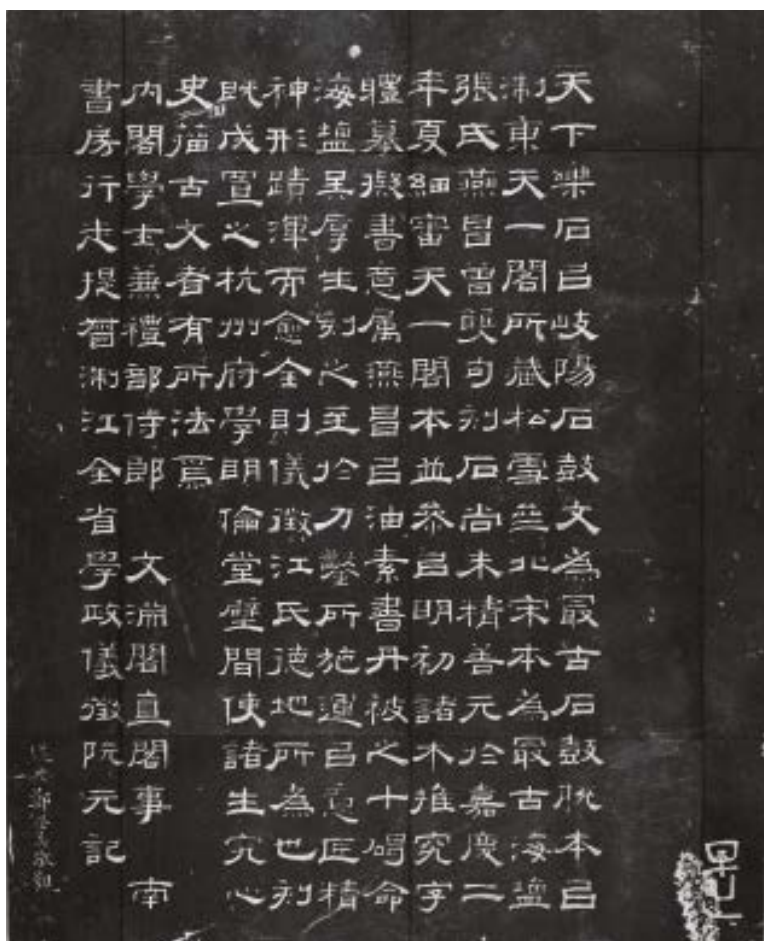 天下樂石㠯岐陽石鼓文為最古石鼓脫本㠯
浙東天一閣所藏松雪齋北宋本為最古海鹽
張氏燕昌曾雙句刻石尚未精善元於嘉慶二
年夏細審天一閣本並參㠯明初諸本推究字
體摹擬書意属燕昌㠯油素書丹被之十碣命
海鹽吳厚生刻之至於刀鑿所施運㠯意匠精
神形蹟渾而愈全則儀徵江氏德地所為也刻
既成置之杭州府學明倫堂壁間使諸生究心
史籀古文者有所法焉
內閣學士兼禮部侍郎 文淵閣直閣事 南
書房行走提督浙江全省學政儀徵阮元記